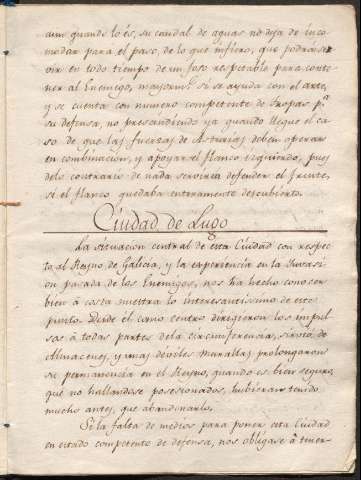 aun quando lo és, su caudal de aguas no deja de inco-
modar para el paso, de lo que infiero, que podrá ser-
vir en todo tiempo de un foso respetable para conte-
ner al Enemigo, mayormte. si se ayuda con el arte,
y se cuenta con numero competente de Tropas pa.
su defensa, no prescindiendo ya quando llegue el ca-
so de que las fuerzas de Asturias deben operar
en combinacion, y apoyar el flanco izquierdo, pues
delo contrario de nada serviria defender el frente,
si el flanco quedaba enteramente descubierto.
Ciudad de Lugo
La situacion central de esta Ciudad con respec-
to al Reyno de Galicia, y la experiencia en la Ynvasi-
on pasada de los Enemigos, nos ha hecho conocer
bien à costa nuestra lo interesantisimo de este
punto. Desde el como centro dirigieron los impul-
sos à todas partes dela circunferencia, sirvió de
Almacenes, y unas débiles murallas prolongaron
su permanencia en el Reyno, quando es bien seguro,
que no hallandose posesionados, hubieran tenido
mucho antes, que abandonarlo.
Si la falta de medios para poner esta Ciudad
en estado competente de defensa, nos obligase à tener-